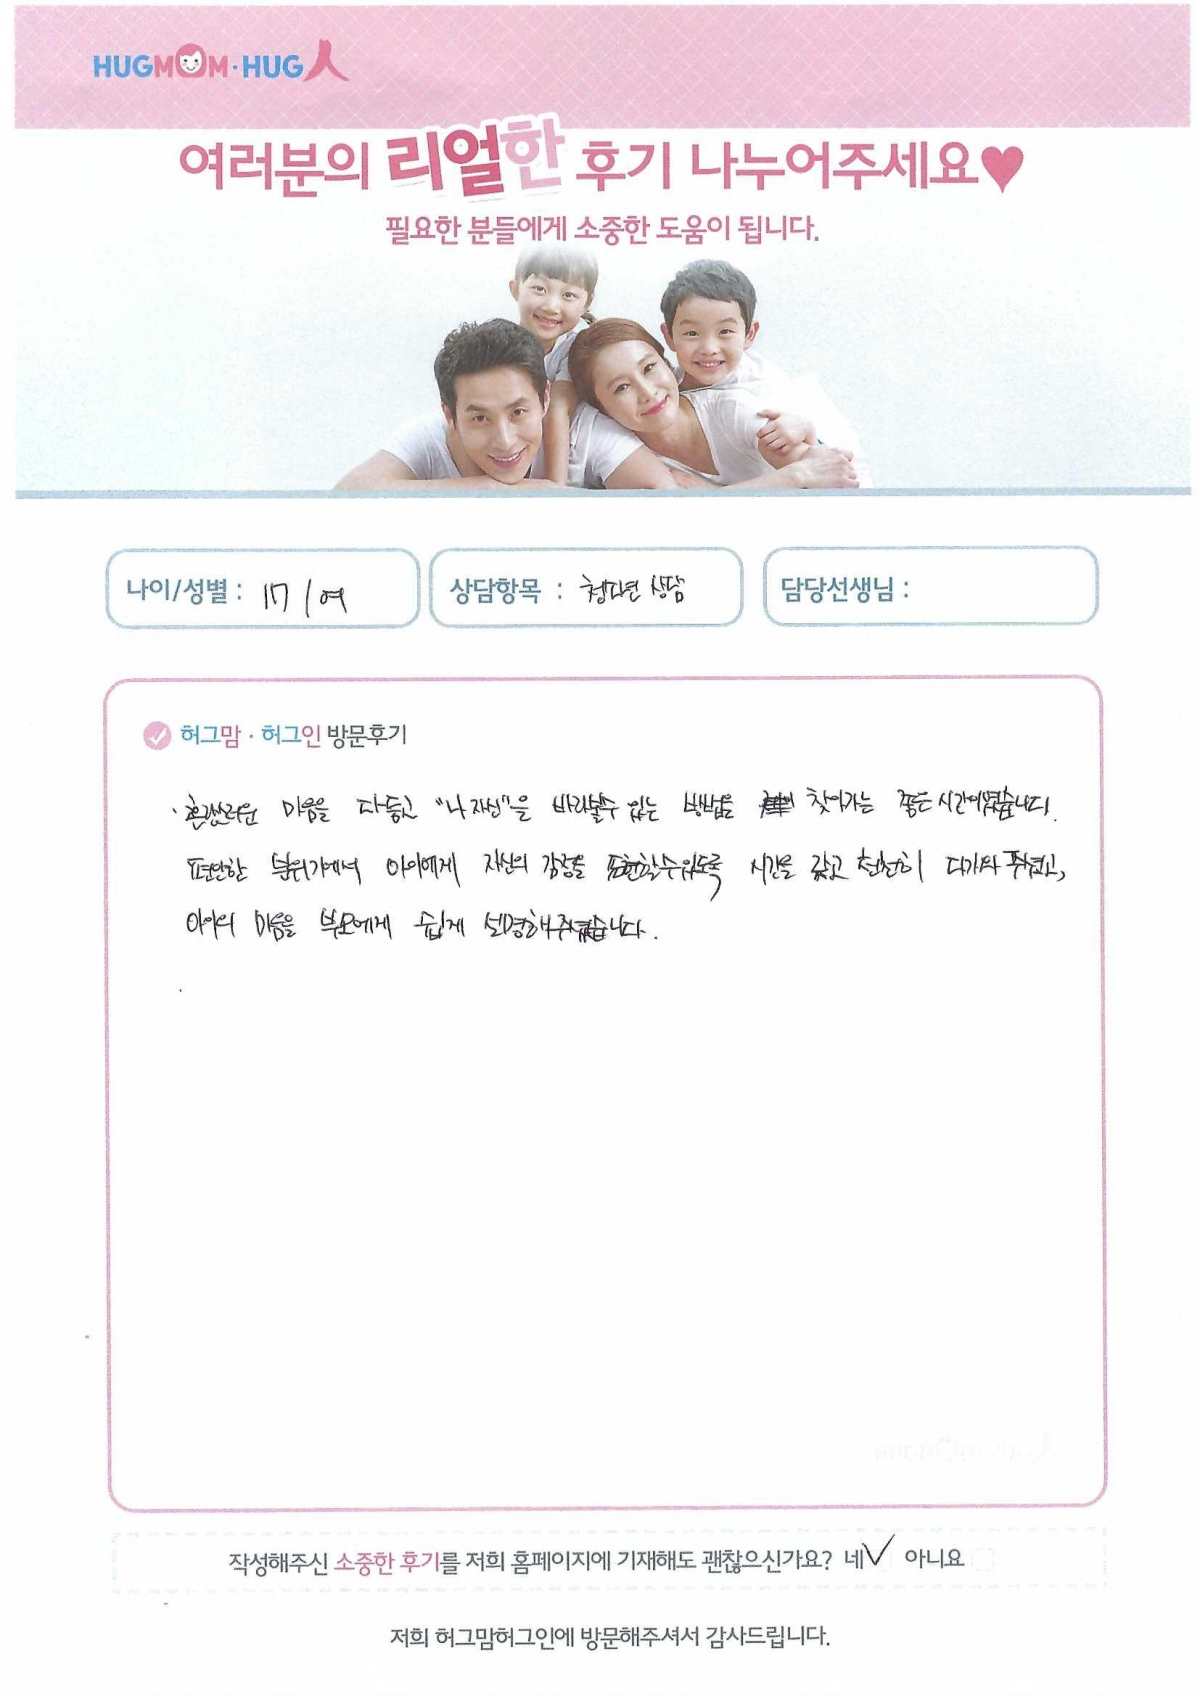 HUGMOM·HUG人
여러분의 리얼한 후기 나누어주세요♥
필요한 분들에게 소중한 도움이 됩니다.
나이/성별 : 17 / 여
상담항목 : 청소년 상담
담당선생님 :
허그맘 · 허그인 방문후기
· 혼란스러운 마음을 다듬고 "나 자신"을 바라볼수 있는 방법을 찾아가는 좋은 시간이였습니다.
편안한 분위기에서 아이에게 자신의 감정을 표현할수있도록 시간을 갖고 천천히 다가와 주셨고,
아이의 마음을 부모에게 쉽게 설명해주셨습니다.
작성해주신 소중한 후기를 저희 홈페이지에 기재해도 괜찮으신가요? 네 아니요
저희 허그맘허그인에 방문해주셔서 감사드립니다.